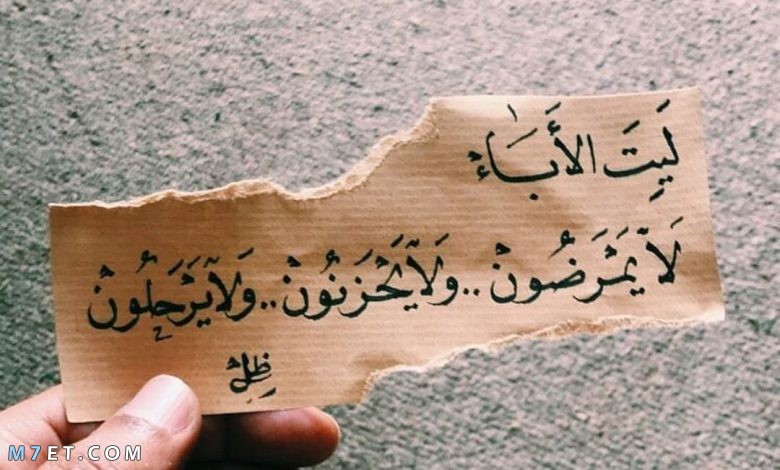 لَيتَ الأَبَاء
لَا يَمْرَضُونْ..وَلَا يَحْزَنُونْ..وَلَا يَرْحَلُونْ
ظِل
M7ET.COM